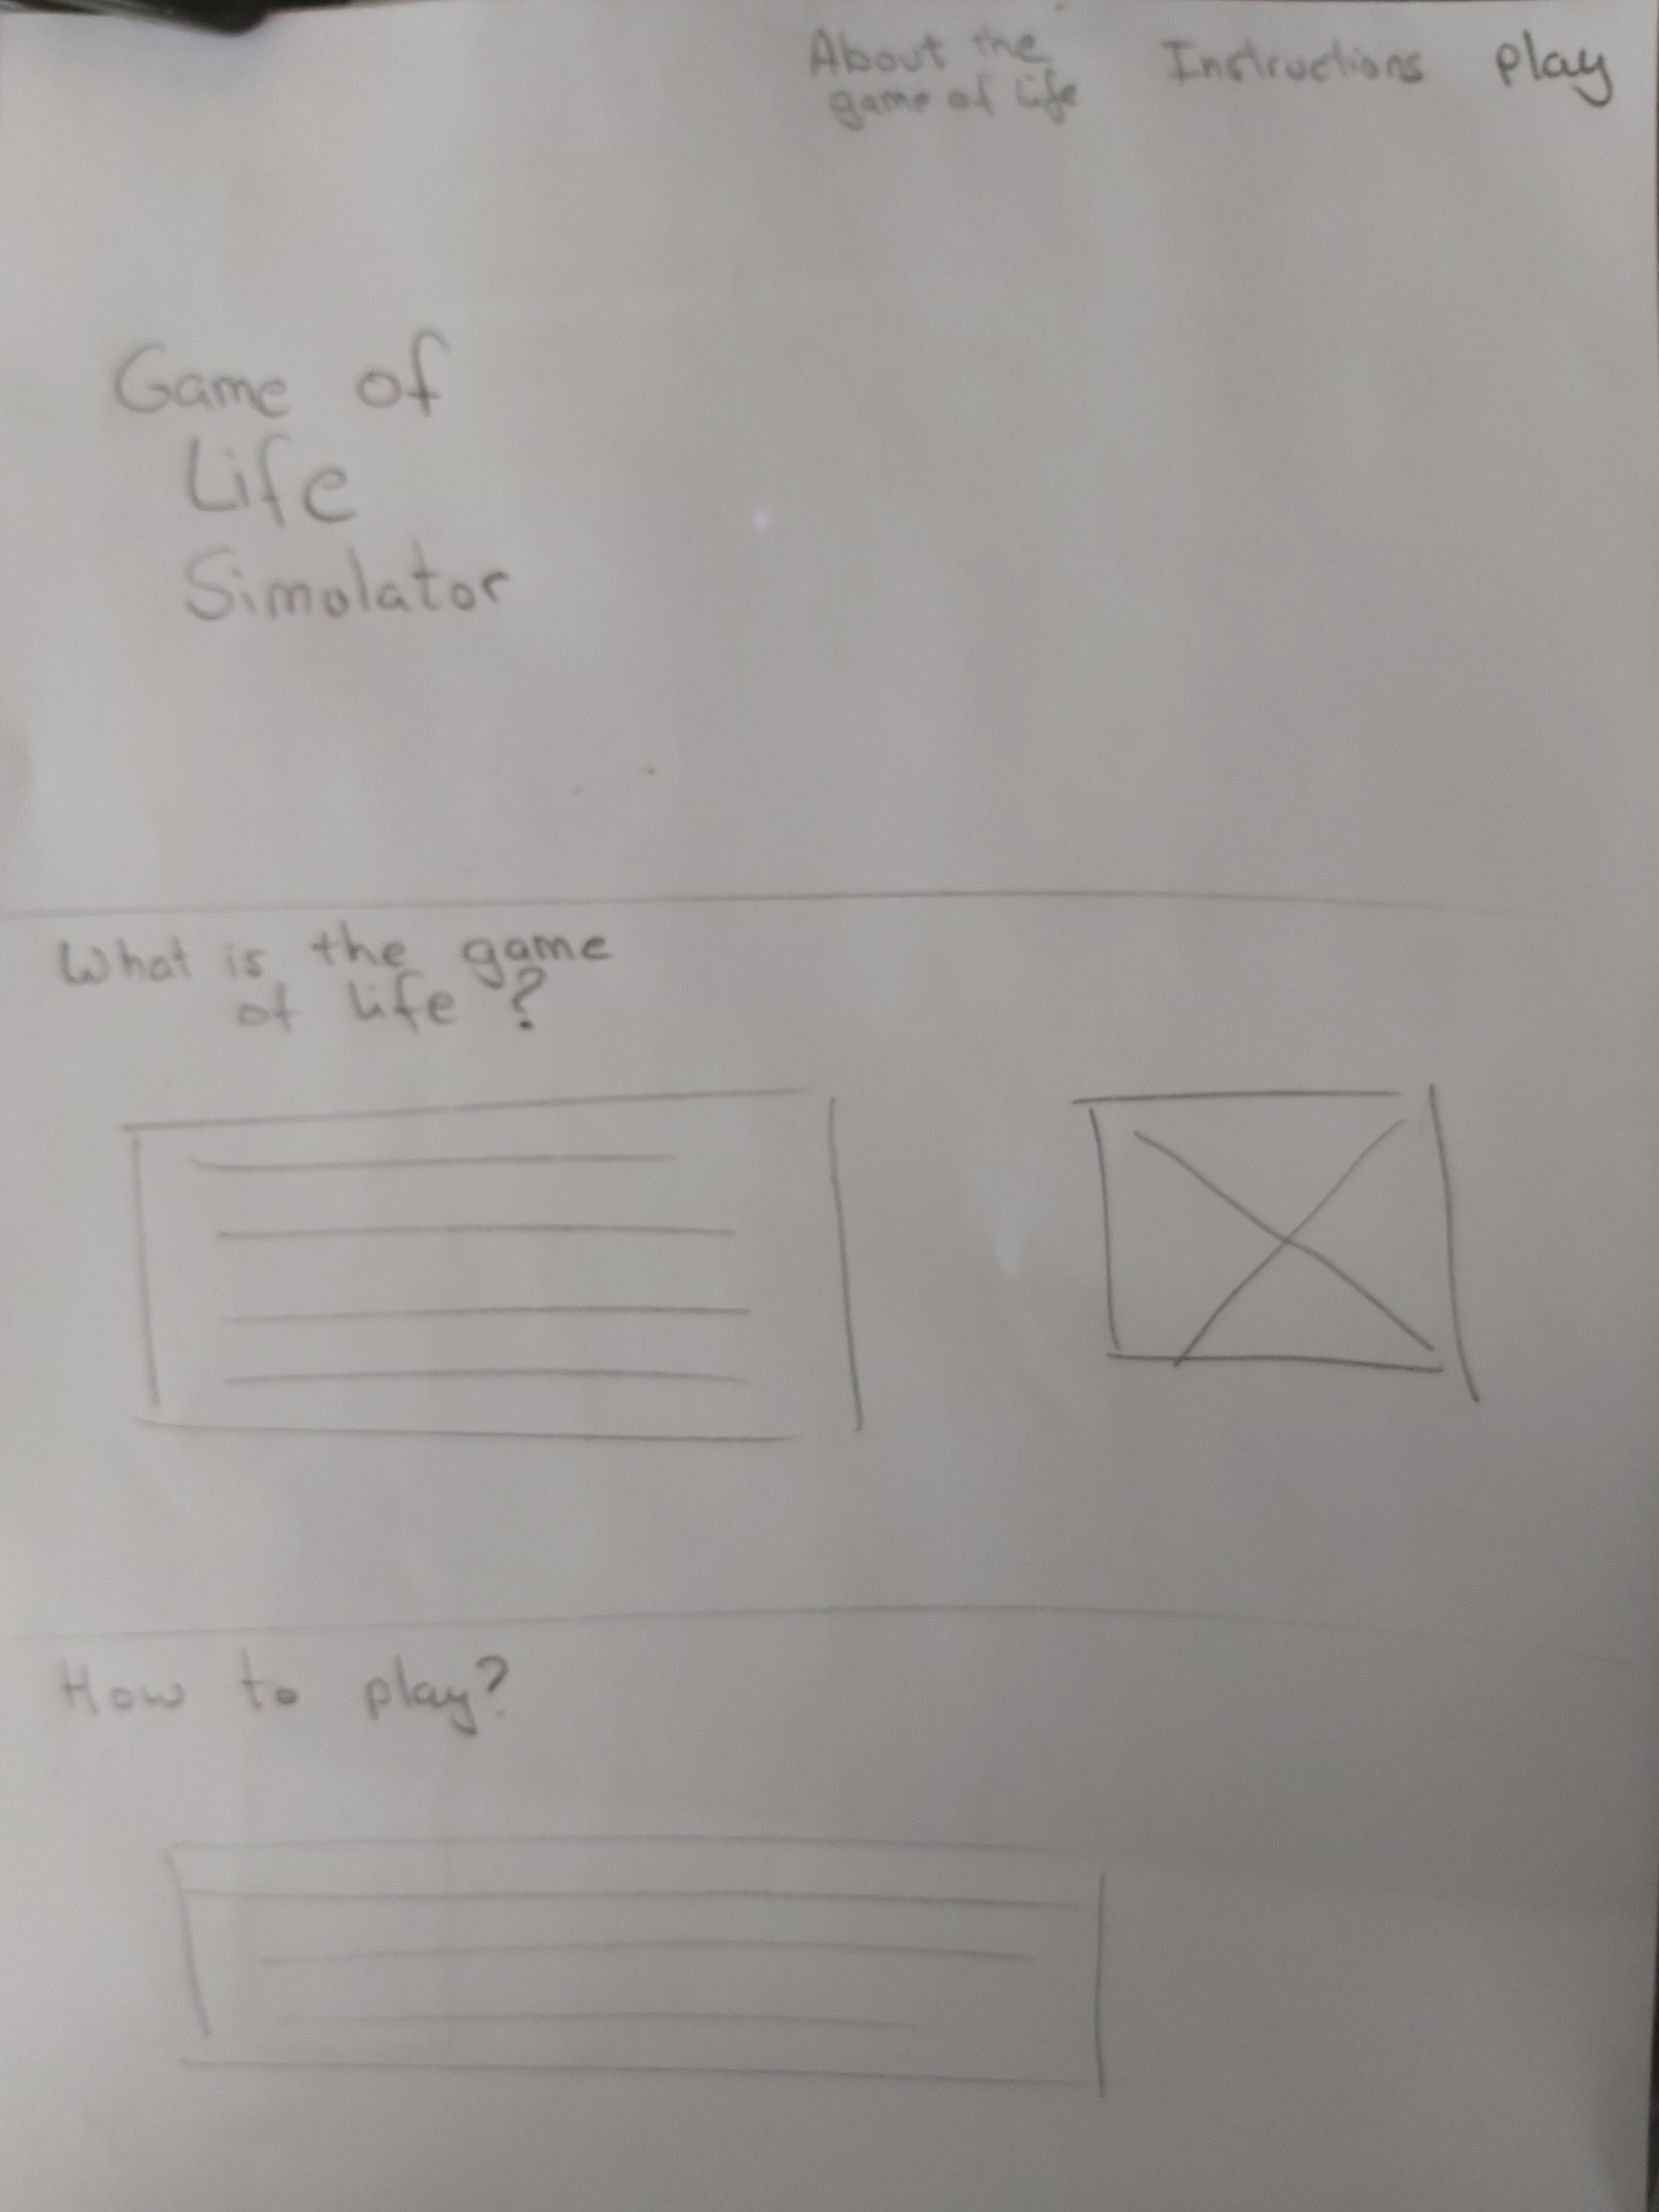 About the
game of life
Instructions
play
Game of
Life
Simulator
What is the game
of life?
How to play?